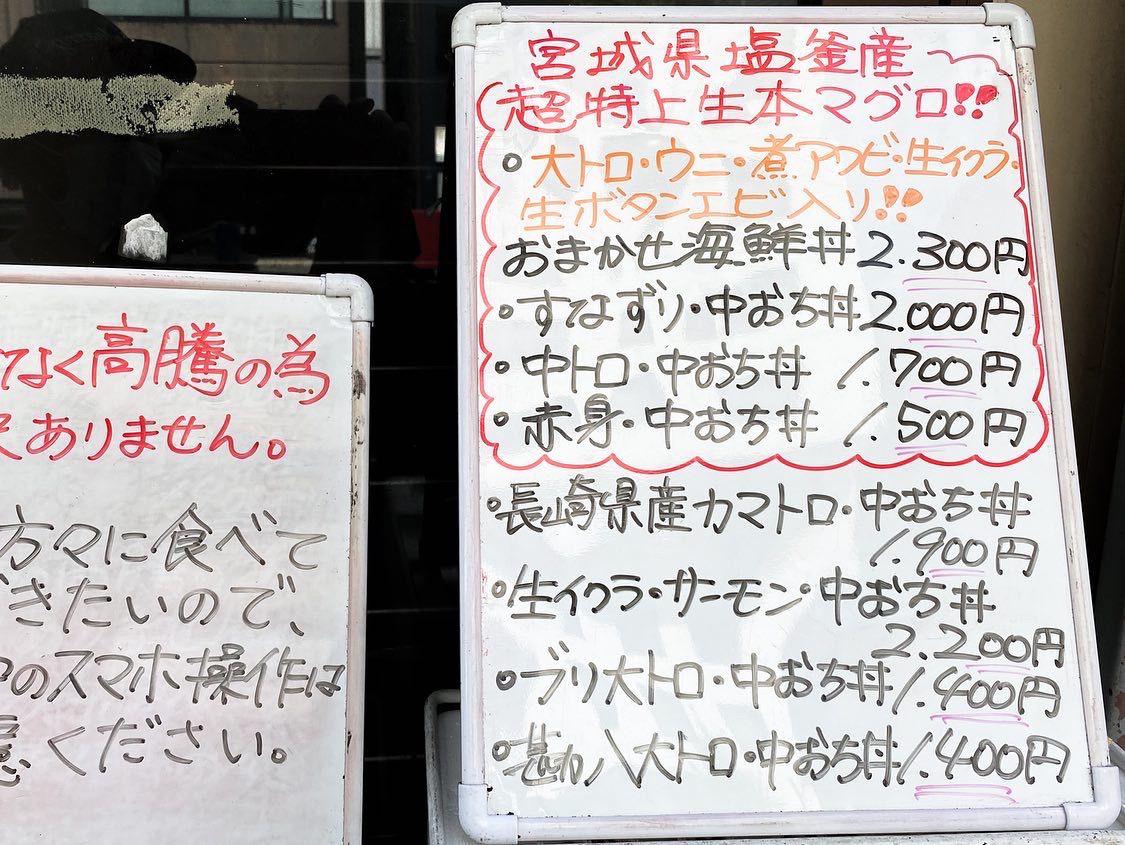 宮城県塩釜産
超特上生本マグロ!!
・大トロ・ウニ・煮アワビ・生イクラ・
生ボタンエビ入り!!
おまかせ海鮮丼2.300円
・すなずり・中おち丼2.000円
・中トロ・中おち丼 1.700円
・赤身・中おち丼 1.500円
・長崎県産カマトロ・中おち丼
1.900円
・生イクラ・サーモン・中おち丼
2.200円
・ブリ大トロ・中おち丼1.400円
・勘八大トロ・中おち丼1.400円
てなく高騰の為
ありません。
方々に食べて
きたいので、
のスマホ操作は
慮ください。